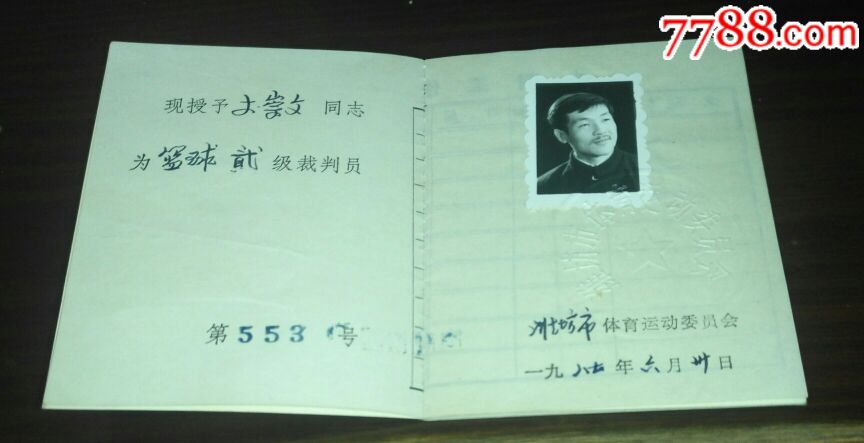 7788.com
现授予 崇文 同志
为 篮球 贰 级裁判员
第 553 号
潍坊市 体育运动委员会
一九 八七 年 六 月 卅 日